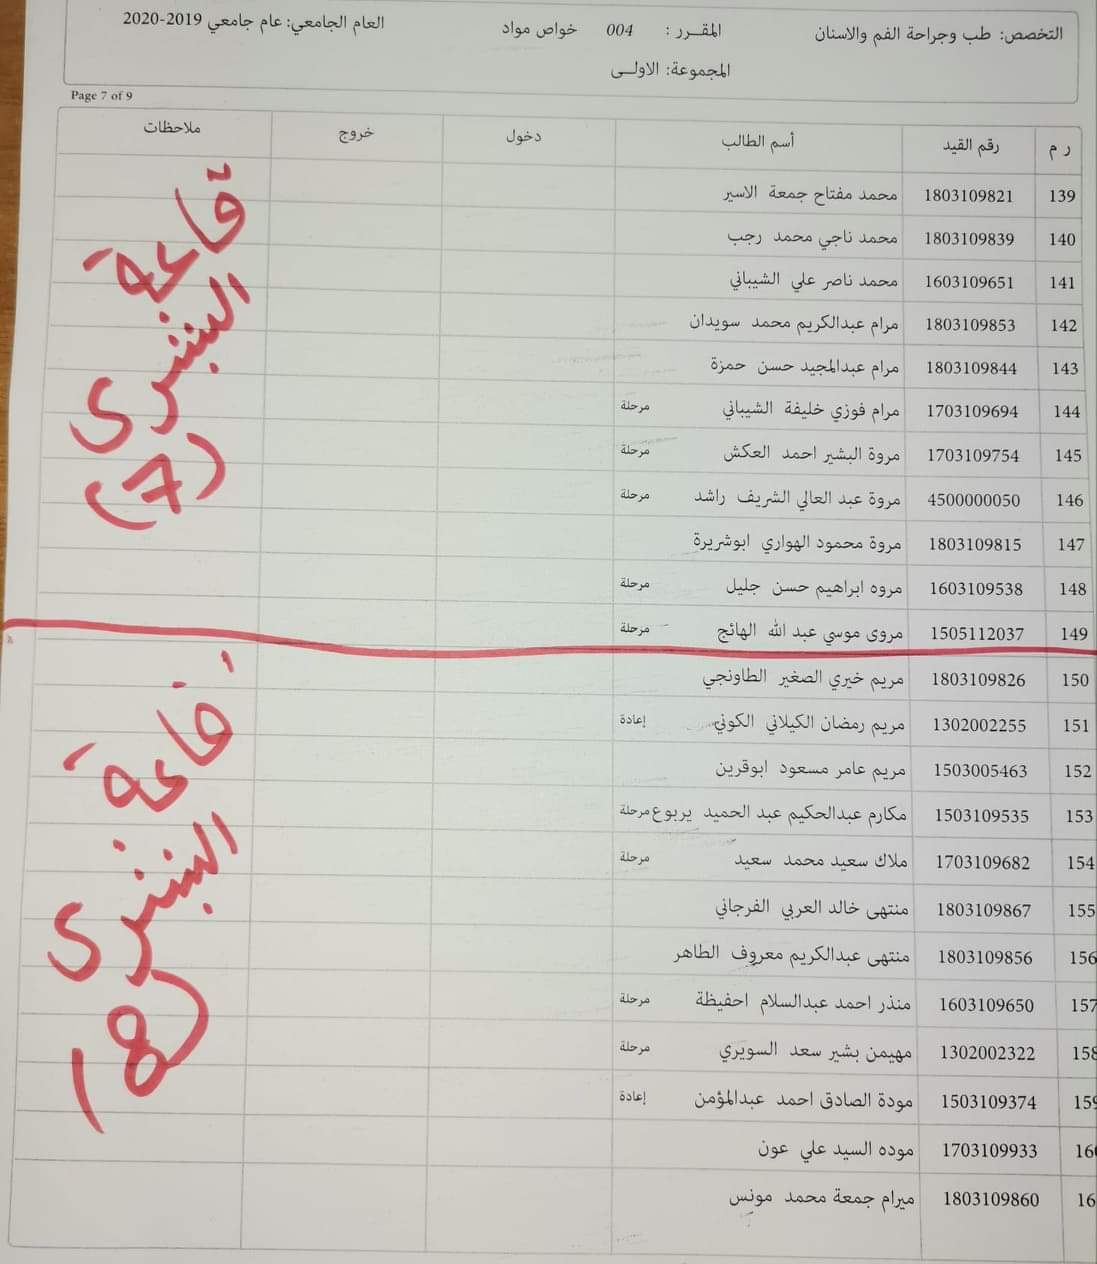 التخصص: طب وجراحة الفم والاسنان المقـرر : 004 خواص مواد العام الجامعي: عام جامعي 2019-2020
المجموعة: الاولـى
Page 7 of 9
ر م رقم القيد أسم الطالب دخول خروج ملاحظات
139 1803109821 محمد مفتاح جمعة الاسير
140 1803109839 محمد ناجي محمد رجب
141 1603109651 محمد ناصر علي الشيباني
142 1803109853 مرام عبدالكريم محمد سويدان
143 1803109844 مرام عبدالمجيد حسن حمزة
144 1703109694 مرام فوزي خليفة الشيباني مرحلة
145 1703109754 مروة البشير احمد العكش مرحلة
146 4500000050 مروة عبد العالي الشريف راشد مرحلة
147 1803109815 مروة محمود الهواري ابوشريرة
148 1603109538 مروه ابراهيم حسن جليل مرحلة
149 1505112037 مروى موسي عبد الله الهائج مرحلة
قاعة
(7)
150 1803109826 مريم خيري الصغير الطاونجي
151 1302002255 مريم رمضان الكيلاني الكوني إعادة
152 1503005463 مريم عامر مسعود ابوقرين
153 1503109535 مكارم عبدالحكيم عبد الحميد يربوع مرحلة
154 1703109682 ملاك سعيد محمد سعيد مرحلة
155 1803109867 منتهى خالد العربي الفرجاني
156 1803109856 منتهى عبدالكريم معروف الطاهر
157 1603109650 منذر احمد عبدالسلام احفيظة مرحلة
158 1302002322 مهيمن بشير سعد السويري مرحلة
159 1503109374 مودة الصادق احمد عبدالمؤمن إعادة
16 1703109933 موده السيد علي عون
16 1803109860 ميرام جمعة محمد مونس
قاعة
(8)